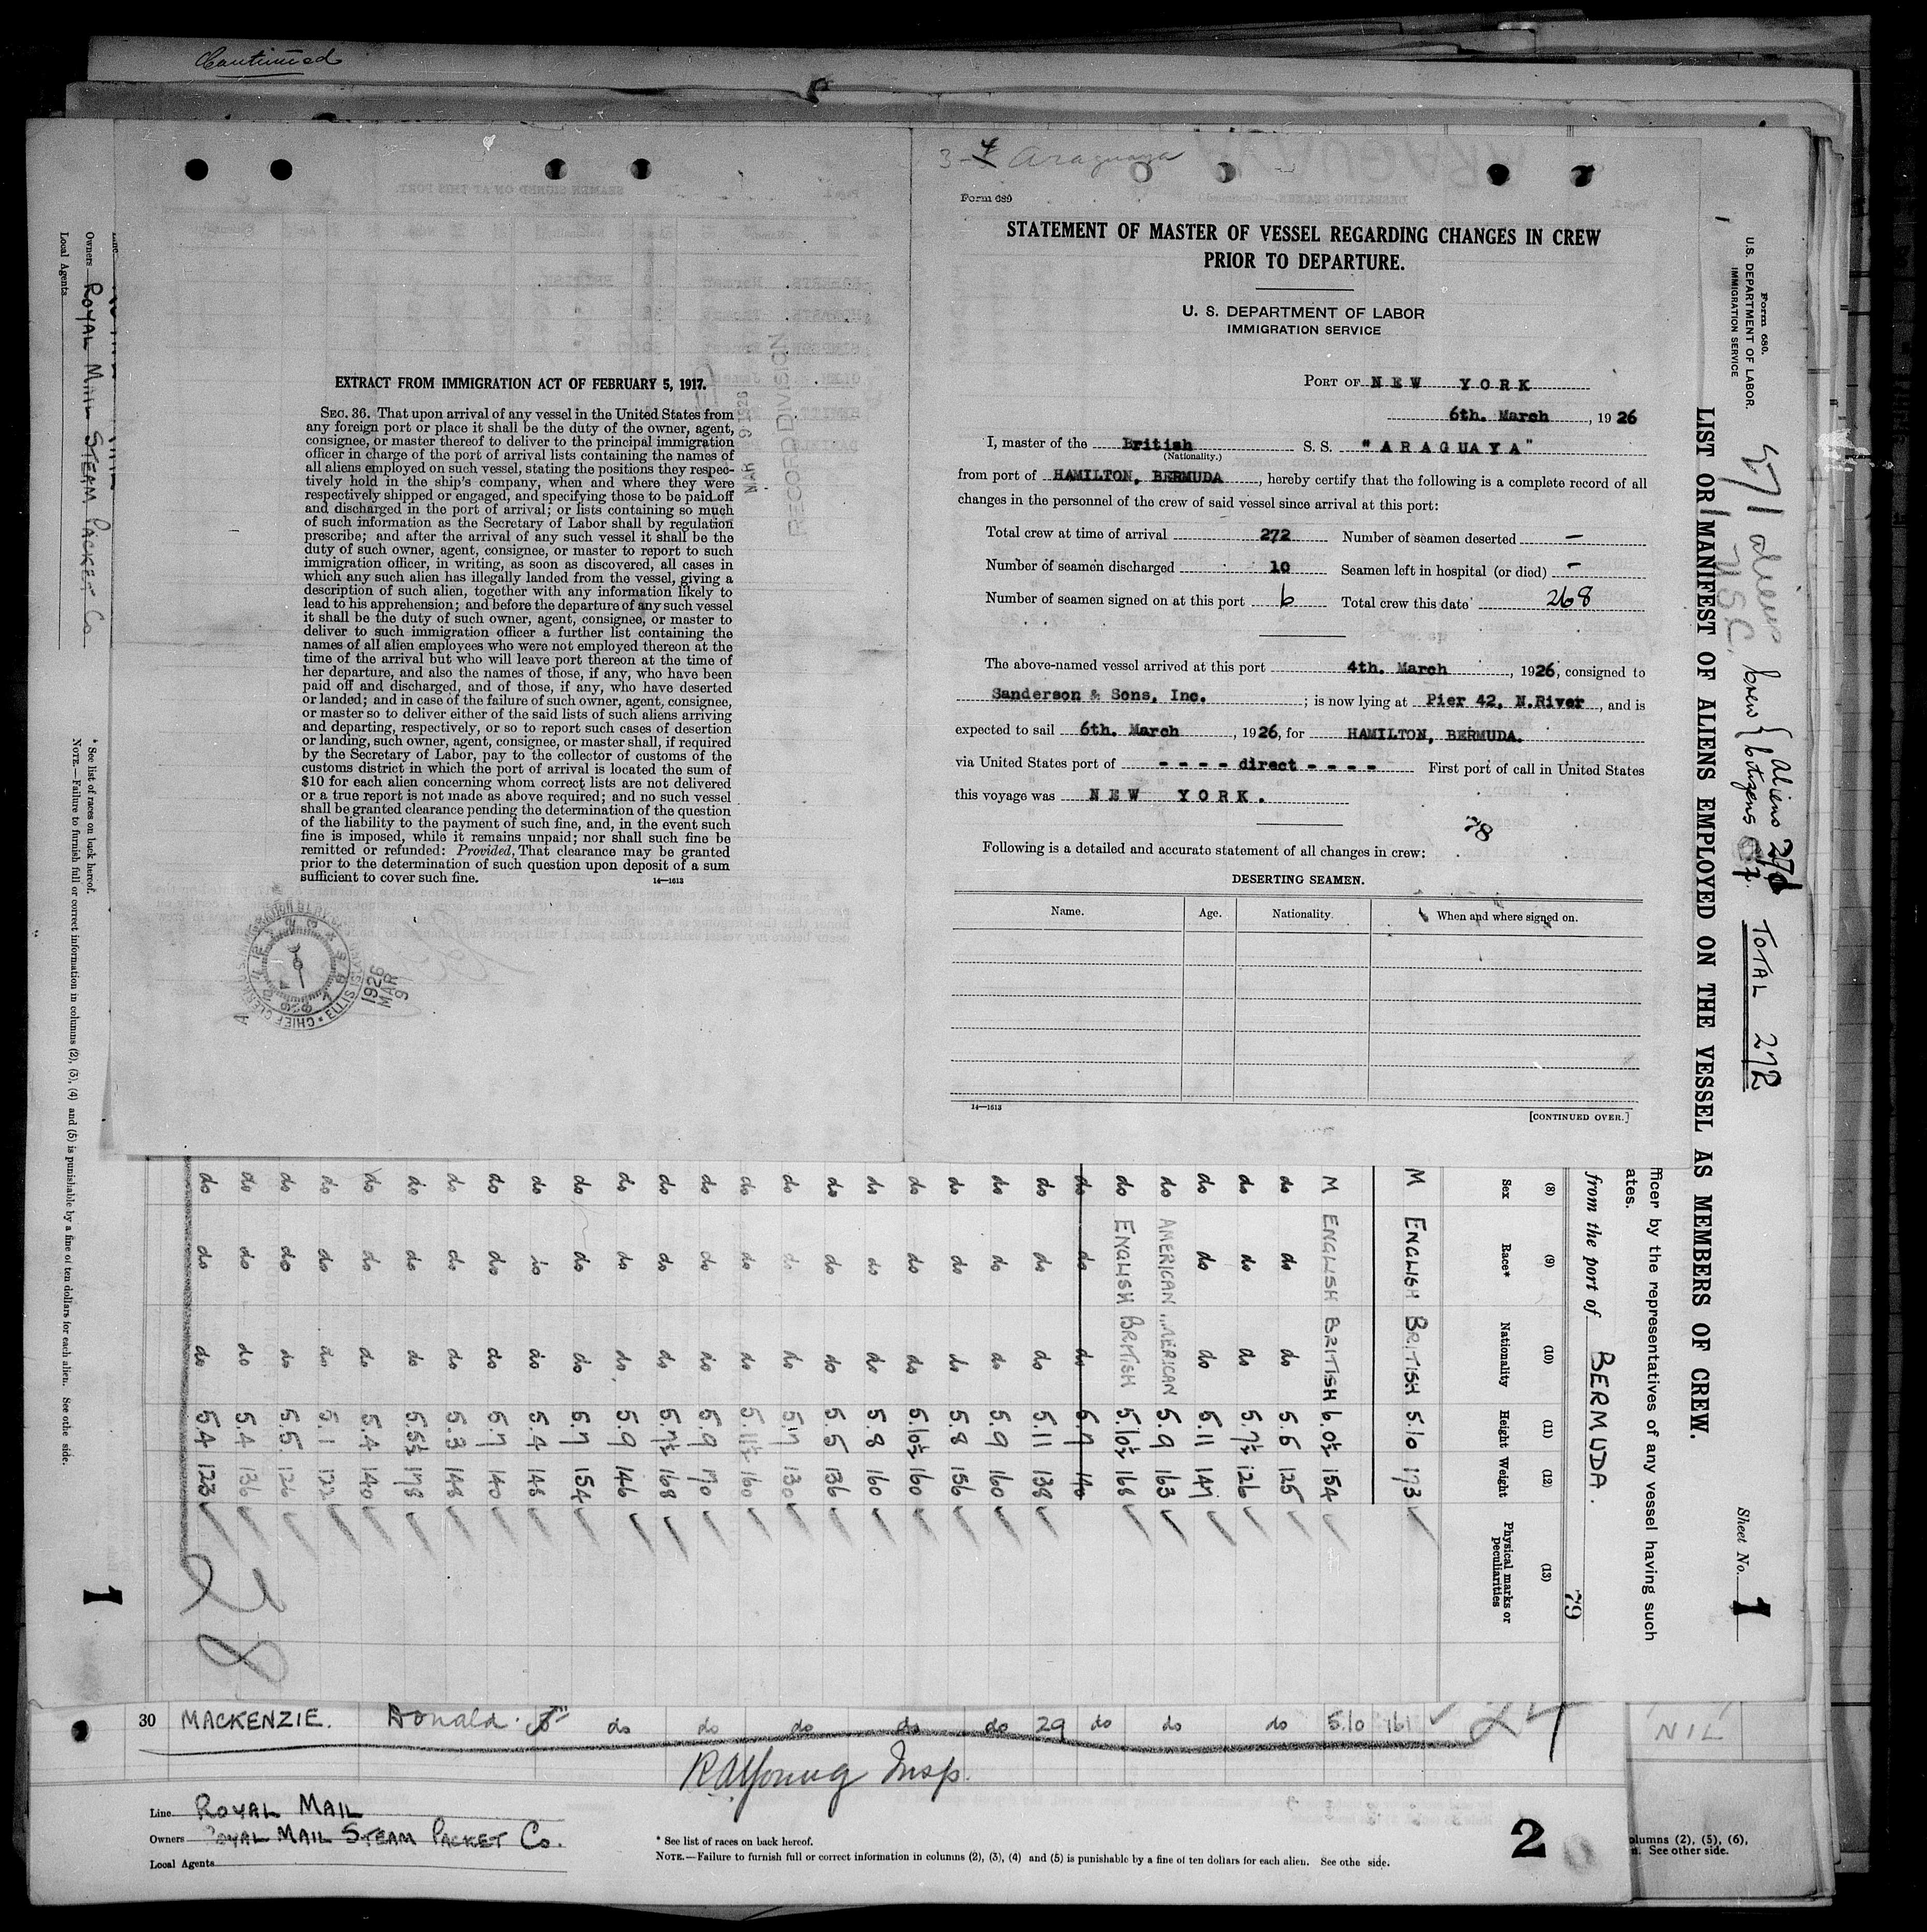 Continued
EXTRACT FROM IMMIGRATION ACT OF FEBRUARY 5, 1917.
SEC. 36. That upon arrival of any vessel in the United States from
any foreign port or place it shall be the duty of the owner, agent,
consignee, or master thereof to deliver to the principal immigration
officer in charge of the port of arrival lists containing the names of
all aliens employed on such vessel, stating the positions they respec-
tively hold in the ship's company, when and where they were
respectively shipped or engaged, and specifying those to be paid off
and discharged in the port of arrival; or lists containing so much
of such information as the Secretary of Labor shall by regulation
prescribe; and after the arrival of any such vessel it shall be the
duty of such owner, agent, consignee, or master to report to such
immigration officer, in writing, as soon as discovered, all cases in
which any such alien has illegally landed from the vessel, giving a
description of such alien, together with any information likely to
lead to his apprehension; and before the departure of any such vessel
it shall be the duty of such owner, agent, consignee, or master to
deliver to such immigration officer a further list containing the
names of all alien employees who were not employed thereon at the
time of the arrival but who will leave port thereon at the time of
her departure, and also the names of those, if any, who have been
paid off and discharged, and of those, if any, who have deserted
or landed; and in case of the failure of such owner, agent, consignee,
or master so to deliver either of the said lists of such aliens arriving
and departing, respectively, or so to report such cases of desertion
or landing, such owner, agent, consignee, or master shall, if required
by the Secretary of Labor, pay to the collector of customs of the
customs district in which the port of arrival is located the sum of
$10 for each alien concerning whom correct lists are not delivered
or a true report is not made as above required; and no such vessel
shall be granted clearance pending the determination of the question
of the liability to the payment of such fine, and, in the event such
fine is imposed, while it remains unpaid; nor shall such fine be
remitted or refunded: Provided, That clearance may be granted
prior to the determination of such question upon deposit of a sum
sufficient to cover such fine.
14—1613
MAR 9 1926
RECORD DIVISION
1926
MAR
9
3-4 Araguaya
Form 689
STATEMENT OF MASTER OF VESSEL REGARDING CHANGES IN CREW
PRIOR TO DEPARTURE.
U. S. DEPARTMENT OF LABOR
IMMIGRATION SERVICE
PORT OF NEW YORK
6th. March, 1926
I, master of the British S. S. "ARAGUAYA"
(Nationality.)
from port of HAMILTON, BERMUDA, hereby certify that the following is a complete record of all
changes in the personnel of the crew of said vessel since arrival at this port:
Total crew at time of arrival 272 Number of seamen deserted —
Number of seamen discharged 10 Seamen left in hospital (or died) -
Number of seamen signed on at this port 6 Total crew this date 268
The above-named vessel arrived at this port 4th. March, 1926, consigned to
Sanderson & Sons, Inc.; is now lying at Pier 42, N.River, and is
expected to sail 6th. March, 1926, for HAMILTON, BERMUDA.
via United States port of - - - - direct - - - - First port of call in United States
this voyage was NEW YORK.
78
Following is a detailed and accurate statement of all changes in crew:
DESERTING SEAMEN.
Name. Age. Nationality. When and where signed on.
14—1613
[CONTINUED OVER.]
Form 680.
U. S. DEPARTMENT OF LABOR.
IMMIGRATION SERVICE
LIST OR MANIFEST OF ALIENS EMPLOYED ON THE VESSEL AS MEMBERS OF CREW.
Crew { Aliens
Citizens
TOTAL 272
Sheet No. 1
fficer by the representatives of any vessel having such
ates.
from the port of BERMUDA.
79
(8) (9) (10) (11) (12) (13)
Sex Race* Nationality Height Weight Physical marks or peculiarities
M ENGLISH BRITISH 5.10 173
M ENGLISH BRITISH 6.0½ 154
do do do 5.6 125
do do do 5.7½ 126
do do do 5.11 147
do AMERICAN AMERICAN 5.9 163
do ENGLISH BRITISH 5.10½ 168
do do do 5.7 140
do do do 5.11 138
do do do 5.9 160
do do do 5.8 156
do do do 5.10½ 160
do do do 5.8 160
do do do 5.5 136
do do do 5.7 130
do do do 5.11½ 160
do do do 5.9 170
do do do 5.7½ 168
do do do 5.9 146
do do do 5.7 154
do do do 5.4 148
do do do 5.7 140
do do do 5.3 148
do do do 5.5½ 178
do do do 5.4 140
do do do 5.1 122
do do do 5.5 126
do do do 5.4 136
do do do 5.4 123
28
Owners ROYAL MAIL STEAM PACKET Co
Local Agents
* See list of races on back hereof.
NOTE.—Failure to furnish full or correct information in columns (2), (3), (4) and (5) is punishable by a fine of ten dollars for each alien. See othe side.
1
30 MACKENZIE. Donald. do do do do do 29 do do do 5.10 161
NIL
RAYoung Insp.
Line ROYAL MAIL
Owners ROYAL MAIL STEAM PACKET Co.
Local Agents
* See list of races on back hereof.
NOTE.—Failure to furnish full or correct information in columns (2), (3), (4) and (5) is punishable by a fine of ten dollars for each alien. See othe side.
2
olumns (2), (5), (6),
n. See other side.